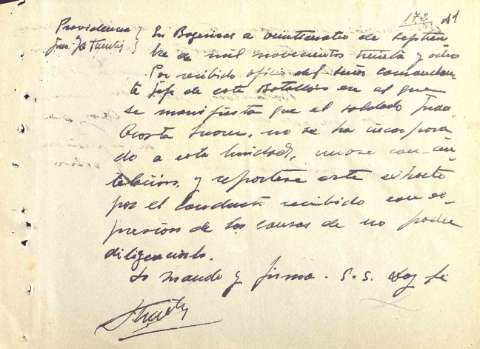 172
Providencia
Juez
En Boquiñas a veinticuatro de septiem
bre de mil novecientos treinta y ocho
Por recibido oficio del señor comandan
te Jefe de este Batallon en el que
se manifiesta que el soldado
Acosta no se ha incorpora
do a esta Unidad, unase con
telacion, y reportese este exhorto
por el conducto recibido con ex
presion de las causas de no poder
diligenciarlo.
Lo mando y firma. S.S. Doy fe